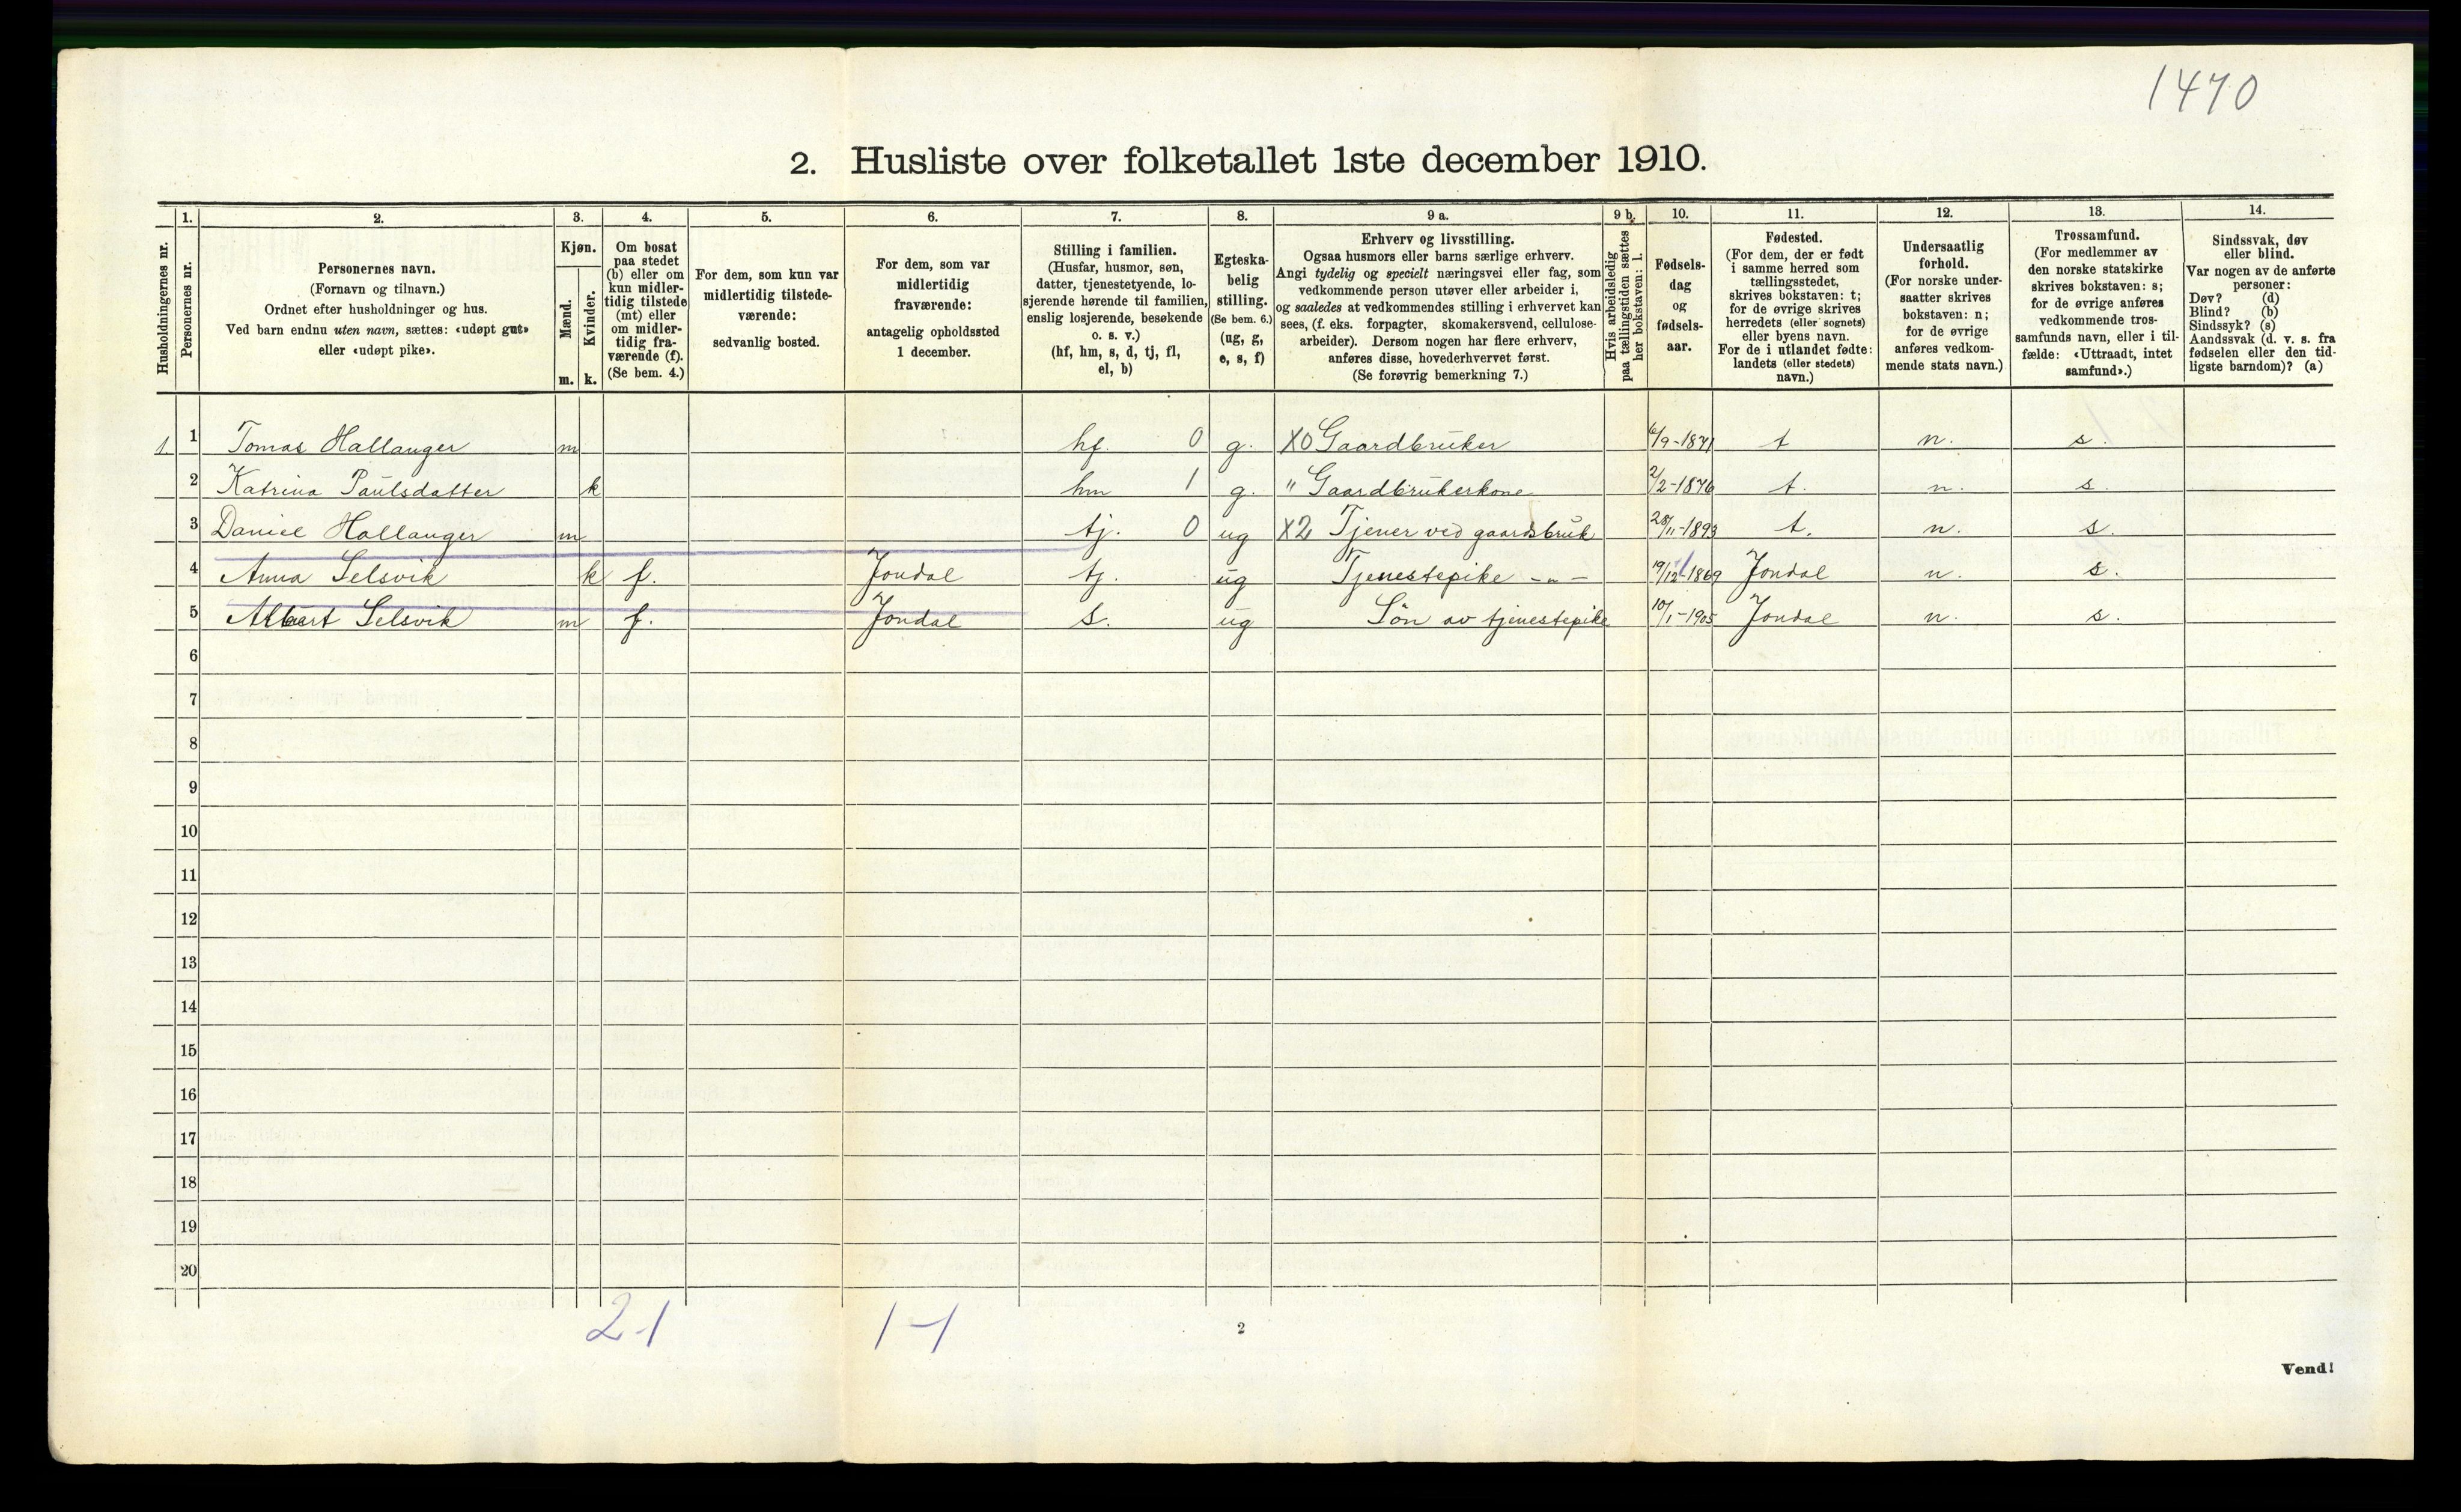 1470
2. Husliste over folketallet 1ste december 1910.
Husholdningernes nr.
1.
Personernes nr.
2.
Personernes navn.
(Fornavn og tilnavn.)
Ordnet efter husholdninger og hus.
Ved barn endnu uten navn, sættes: «udøpt gut»
eller «udøpt pike».
3.
Kjøn.
Mænd.
m.
Kvinder.
k.
4.
Om bosat
paa stedet
(b) eller om
kun midler-
tidig tilstede
(mt) eller
om midler-
tidig fra-
værende (f).
(Se bem. 4.)
5.
For dem, som kun var
midlertidig tilstede-
værende:
sedvanlig bosted.
6.
For dem, som var
midlertidig
fraværende:
antagelig opholdssted
1 december.
7.
Stilling i familien.
(Husfar, husmor, søn,
datter, tjenestetyende, lo-
sjerende hørende til familien,
enslig losjerende, besøkende
o. s. v.)
(hf, hm, s, d, tj, fl,
el, b)
8.
Egteska-
belig
stilling.
(Se bem. 6.)
(ug, g,
e, s, f)
9 a.
Erhverv og livsstilling.
Ogsaa husmors eller barns særlige erhverv.
Angi tydelig og specielt næringsvei eller fag, som
vedkommende person utøver eller arbeider i,
og saaledes at vedkommendes stilling i erhvervet kan
sees, (f. eks. forpagter, skomakersvend, cellulose-
arbeider). Dersom nogen har flere erhverv,
anføres disse, hovederhvervet først.
(Se forøvrig bemerkning 7.)
9 b.
Hvis arbeidsledig
paa tællingstiden sættes
her bokstaven: l.
10.
Fødsels-
dag
og
fødsels-
aar.
11.
Fødested.
(For dem, der er født
i samme herred som
tællingsstedet,
skrives bokstaven: t;
for de øvrige skrives
herredets (eller sognets)
eller byens navn.
For de i utlandet fødte:
landets (eller stedets)
navn.)
12.
Undersaatlig
forhold.
(For norske under-
saatter skrives
bokstaven: n;
for de øvrige
anføres vedkom-
mende stats navn.)
13.
Trossamfund.
(For medlemmer av
den norske statskirke
skrives bokstaven: s;
for de øvrige anføres
vedkommende tros-
samfunds navn, eller i til-
fælde: «Uttraadt, intet
samfund».)
14.
Sindssvak, døv
eller blind.
Var nogen av de anførte
personer:
Døv? (d)
Blind? (b)
Sindssyk? (s)
Aandssvak (d. v. s. fra
fødselen eller den tid-
ligste barndom)? (a)
1. 1 Tomas Hallanger m hf. 0 g. X0 Gaardbruker 6/9-1871 t n. s.
2 Katrina Paulsdatter k hm 1 g. " Gaardbrukerkone 2/2-1876 t. n. s.
3 Daniel Hallanger m tj. 0 ug X2 Tjener ved gaardsbruk 28/11-1893 t. n. s.
4 Anna Selsvik k f. Jondal tj. ug Tjenestepike -"- 19/12-1869 Jondal n. s.
5 Albert Selsvik m f. Jondal s. ug Sön av tjenestepike 10/1-1905 Jondal n. s.
6
7
8
9
10
11
12
13
14
15
16
17
18
19
20
2-1 1-1
2
Vend!